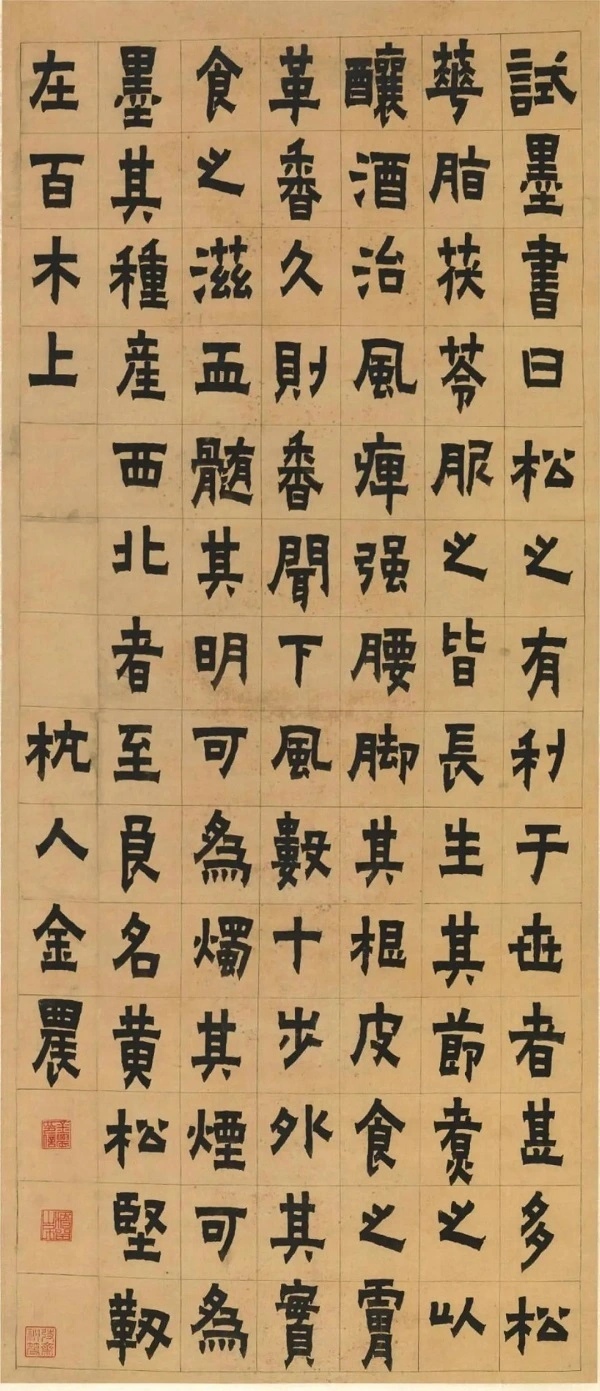 試墨書曰松之有利于世者甚多松
華脂茯苓服之皆長生其節煮之以
釀酒治風痺强腰脚其根皮食之膚
革香久則香聞下風數十步外其實
食之滋血髓其明可爲燭其煙可爲
墨其種産西北者至良名黄松堅韌
在百木上 杭人金農